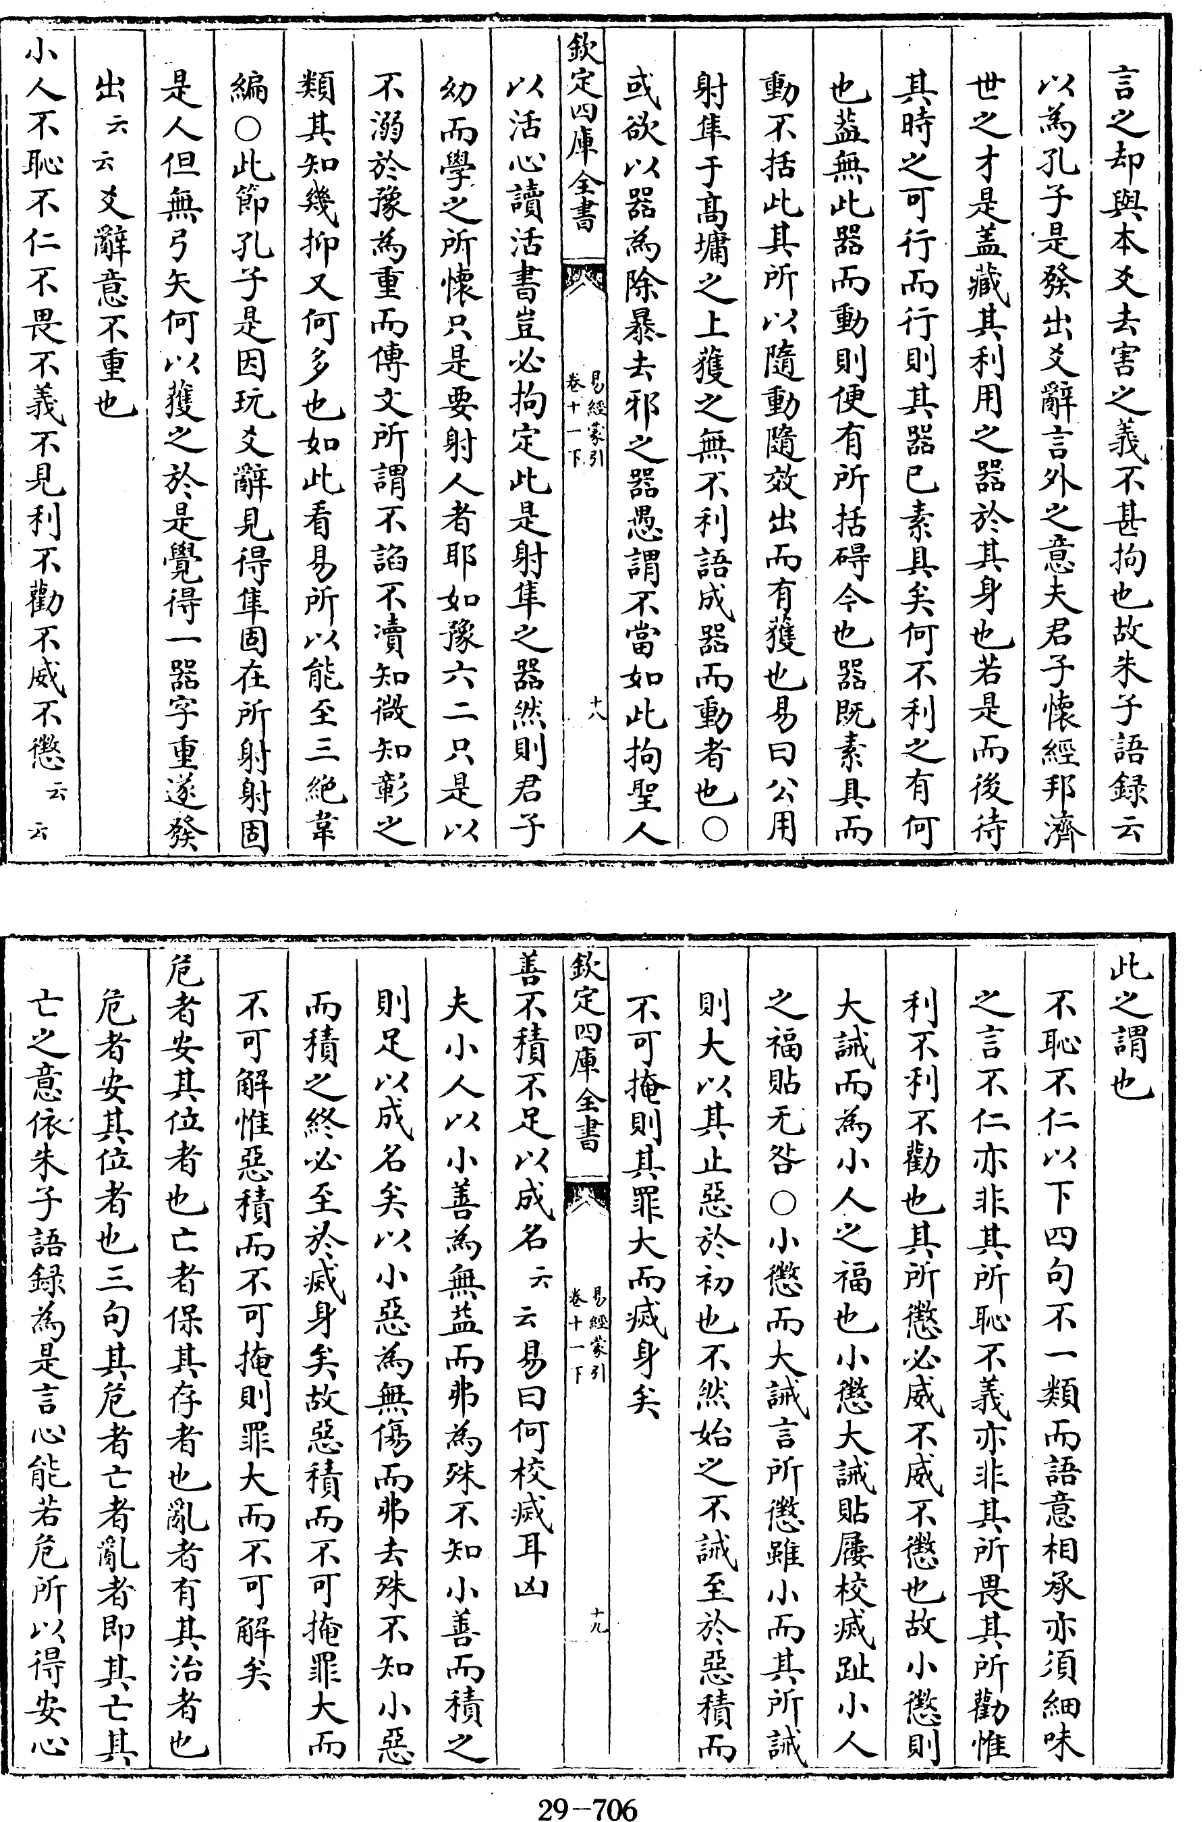 言之却與本爻去害之義不甚拘也故朱子語録云
以為孔子是發出爻辭言外之意夫君子懷經邦濟
世之才是盖藏其利用之器於其身也若是而後待
其時之可行而行則其器已素具矣何不利之有何
也葢無此器而動則便有所括碍今也器既素具而
動不括此其所以隨動隨效出而有獲也易曰公用
射隼于髙墉之上獲之無不利語成器而動者也○
或欲以器為除暴去邪之器愚謂不當如此拘聖人
欽定四庫全書
易經蒙引
卷十一下
十八
以活心讀活書豈必拘定此是射隼之器然則君子
幼而學之所懐只是要射人者耶如豫六二只是以
不溺於豫為重而傳文所謂不諂不瀆知微知彰之
類其知幾抑又何多也如此看易所以能至三絶韋
編○此節孔子是因玩爻辭見得隼固在所射射固
是人但無弓矢何以獲之於是覺得一器字重遂發
出云云爻辭意不重也
小人不恥不仁不畏不義不見利不勸不威不懲云云
此之謂也
不恥不仁以下四句不一類而語意相承亦須細味
之言不仁亦非其所恥不義亦非其所畏其所勸惟
利不利不勸也其所懲必威不威不懲也故小懲則
大誡而為小人之福也小懲大誡貼屨校滅趾小人
之福貼无咎○小懲而大誡言所懲雖小而其所誡
則大以其止惡於初也不然始之不誡至於惡積而
不可掩則其罪大而滅身矣
欽定四庫全書
易經蒙引
卷十一下
十九
善不積不足以成名云云易曰何校滅耳凶
夫小人以小善為無益而弗為殊不知小善而積之
則足以成名矣以小惡為無傷而弗去殊不知小惡
而積之終必至於滅身矣故惡積而不可掩罪大而
不可解惟惡積而不可掩則罪大而不可解矣
危者安其位者也亡者保其存者也亂者有其治者也
危者安其位者也三句其危者亡者亂者即其亡其
亡之意依朱子語録為是言心能若危所以得安心
29-706